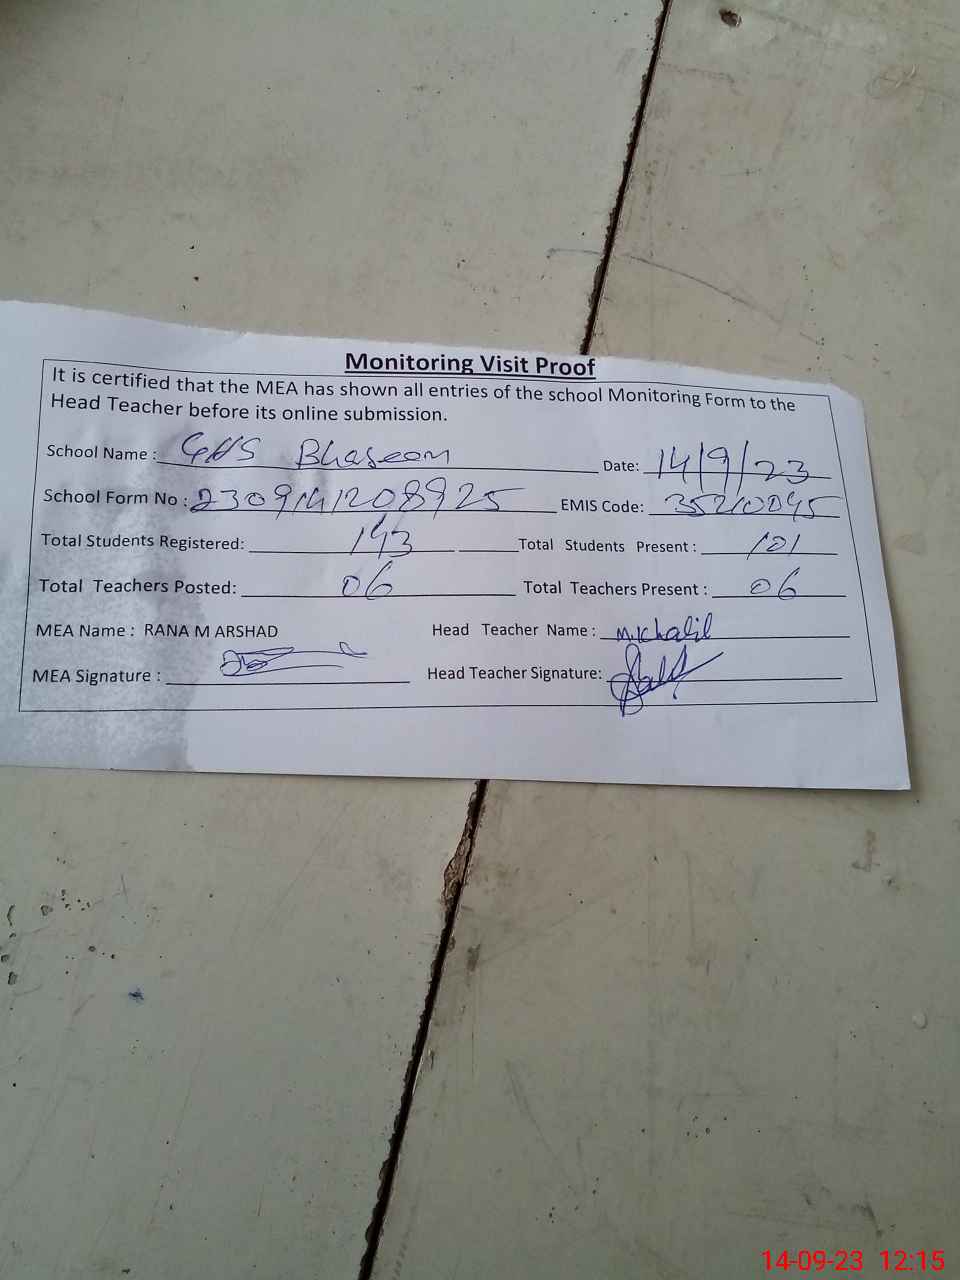 Monitoring Visit Proof
It is certified that the MEA has shown all entries of the school Monitoring Form to the
Head Teacher before its online submission.
School Name : GHS Bhaseen Date: 14/9/23
School Form No : 2309141208925 EMIS Code: 35210045
Total Students Registered: 143 Total Students Present : 101
Total Teachers Posted: 06 Total Teachers Present : 06
MEA Name : RANA M ARSHAD Head Teacher Name : M.Khalil
MEA Signature : Head Teacher Signature:
14-09-23 12:15